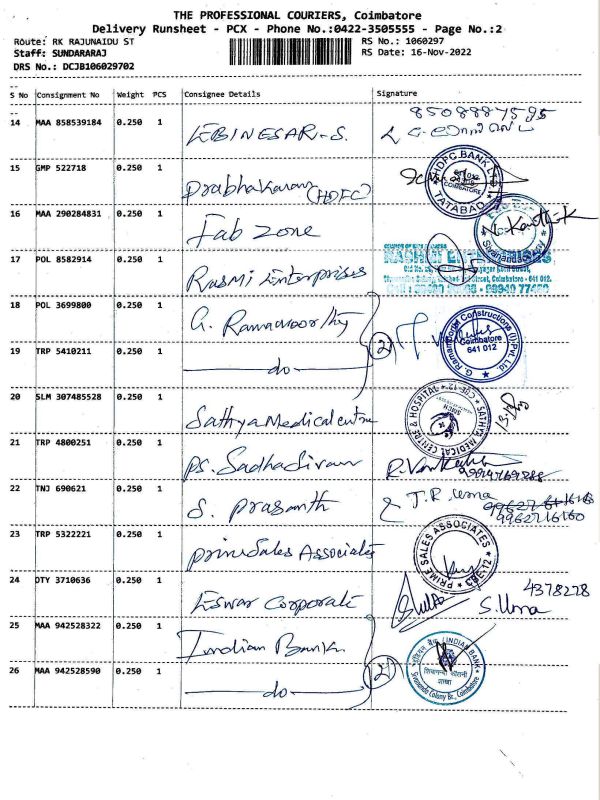 THE PROFESSIONAL COURIERS, Coimbatore
Delivery Runsheet - PCX - Phone No.:0422-3505555 - Page No.:2
Route: RK RAJUNAIDU ST
RS No.: 1060297
Staff: SUNDARARAJ
RS Date: 16-Nov-2022
DRS No.: DCJB106029702
S No Consignment No Weight PCS Consignee Details Signature
14 MAA 858539184 0.250 1 EBINESAR. S.
8508887595
15 GMP 522718 0.250 1 Prabhakaran (HDFC)
HDFC BANK LTD
COIMBATORE
TATABAD
16 MAA 290284831 0.250 1 Fab Zone
Karthik
17 POL 8582914 0.250 1 Rasmi Enterprises
RASHMI ENTERPRISES
18 POL 3699800 0.250 1 G. Ramamoorthy
19 TRP 5410211 0.250 1 —do—
2
G. Ramamoorthy Constructions (I) Pvt. Ltd.
Coimbatore
641 012
20 SLM 307485528 0.250 1 Sathya Medical centre
SATHYA MEDICAL CENTRE & HOSPITAL
21 TRP 4800251 0.250 1 PS. Sadhasivam
22 TNJ 690621 0.250 1 S. Prasanth
J.R. Uma
9962716160
23 TRP 5322221 0.250 1 Prime Sales Associates
PRIME SALES ASSOCIATES
CBE-12
24 OTY 3710636 0.250 1 Eswar Corporate
4378228
S. Uma
25 MAA 942528322 0.250 1 Indian Bank
26 MAA 942528590 0.250 1 —do—
2
INDIAN BANK
Sivananda Colony Br., Coimbatore